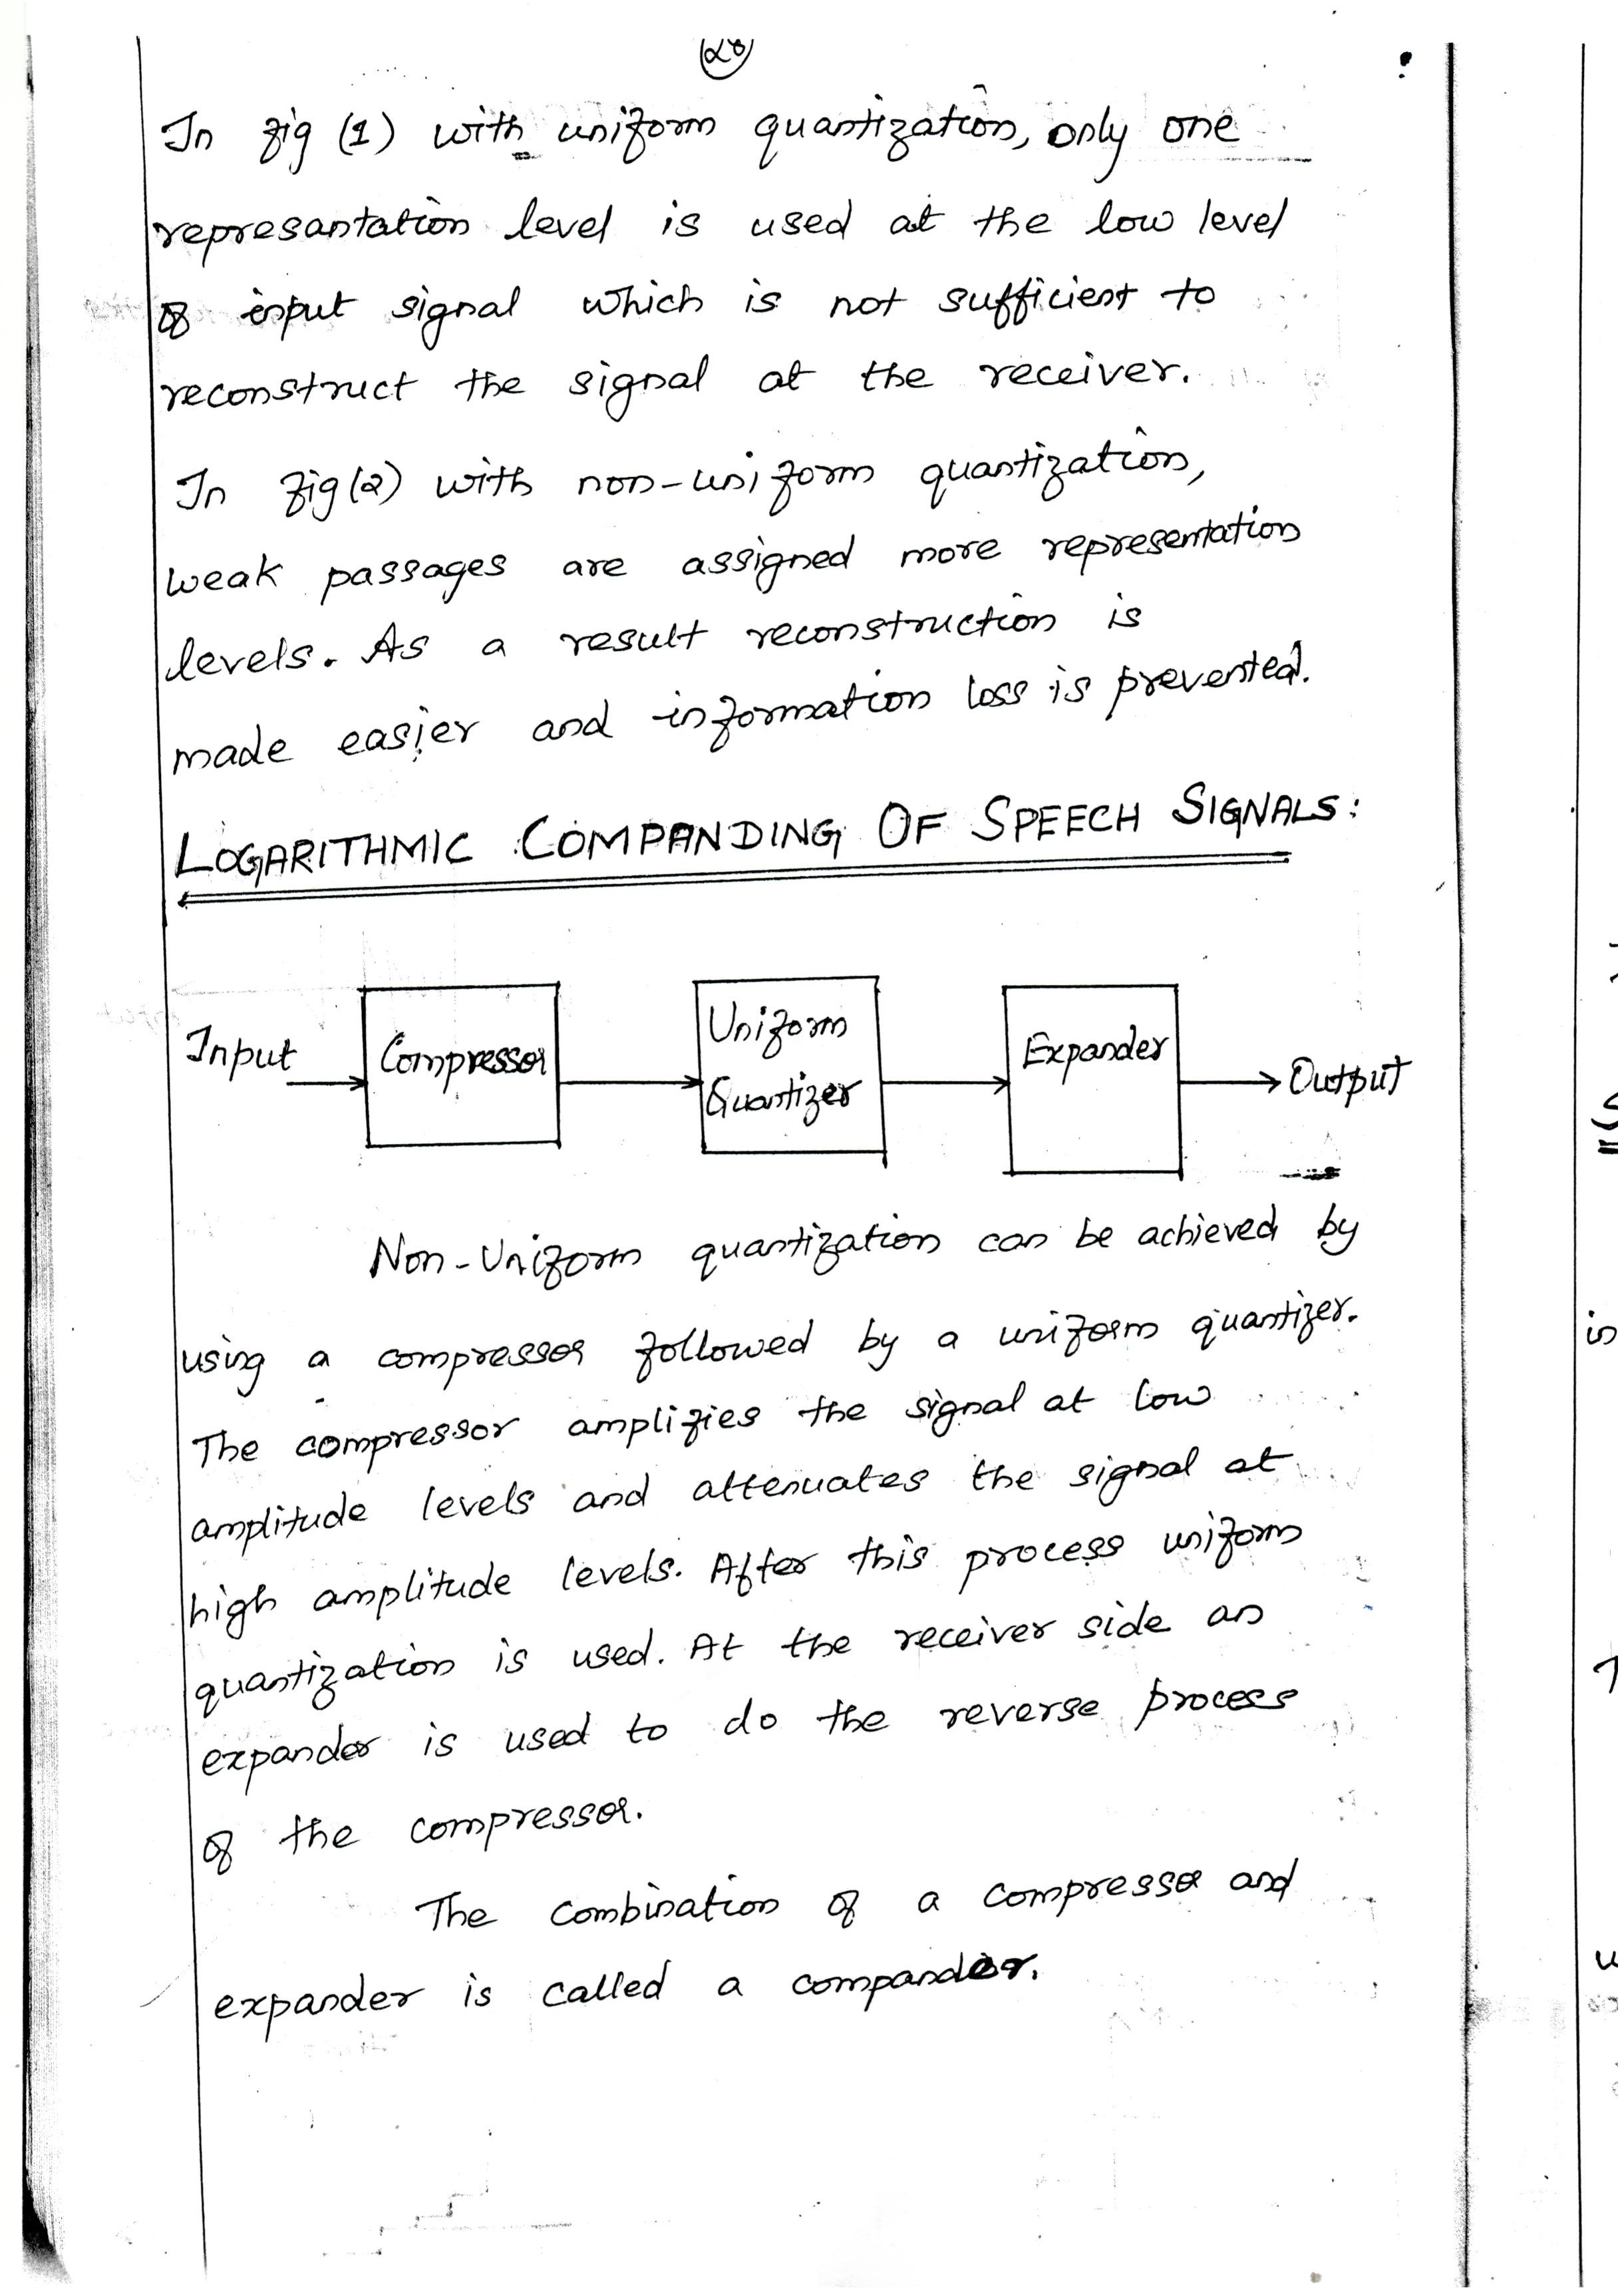 In fig (1) with uniform quantization, only one
represantation level is used at the low level
of input signal which is not sufficient to
reconstruct the signal at the receiver.
In fig (2) with non-uniform quantization,
weak passages are assigned more representation
levels. As a result reconstruction is
made easier and information loss is prevented.
LOGARITHMIC COMPANDING OF SPEECH SIGNALS:
Input
Compressor
Uniform
Quantizer
Expander
Output
Non-Uniform quantization can be achieved by
using a compressor followed by a uniform quantizer.
The compressor amplifies the signal at low
amplitude levels and attenuates the signal at
high amplitude levels. After this process uniform
quantization is used. At the receiver side an
expander is used to do the reverse process
of the compressor.
The combination of a compressor and
expander is called a compander.